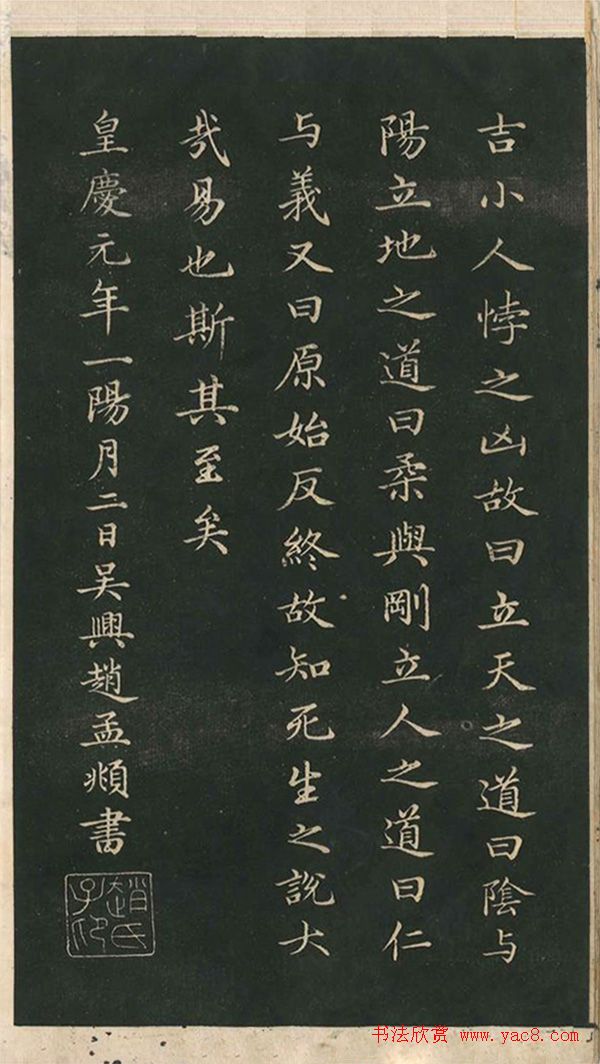 吉小人悖之凶故曰立天之道曰陰与
陽立地之道曰柔與剛立人之道曰仁
与義又曰原始反終故知死生之說大
哉易也斯其至矣
皇慶元年一陽月二日吴興趙孟頫書
趙氏子印
书法欣赏 www.yac8.com